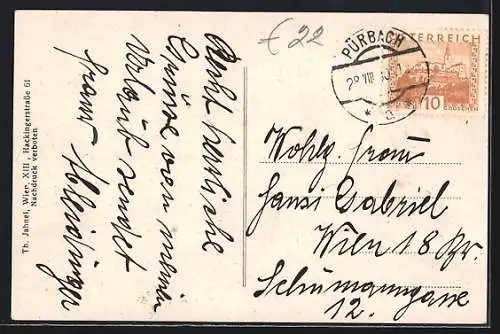 € 22
PÜRBACH
28 VIII
* a
ÖSTERREICH
10
Recht herzliche
Grüsse von meinem
Urlaub sendet
Franz
Wohlg. Frau
Hansi Gabriel
Wien 18. Bz.
Schumanngasse
12.
Th. Jahnel, Wien, XIII., Hackingerstraße 61
Nachdruck verboten